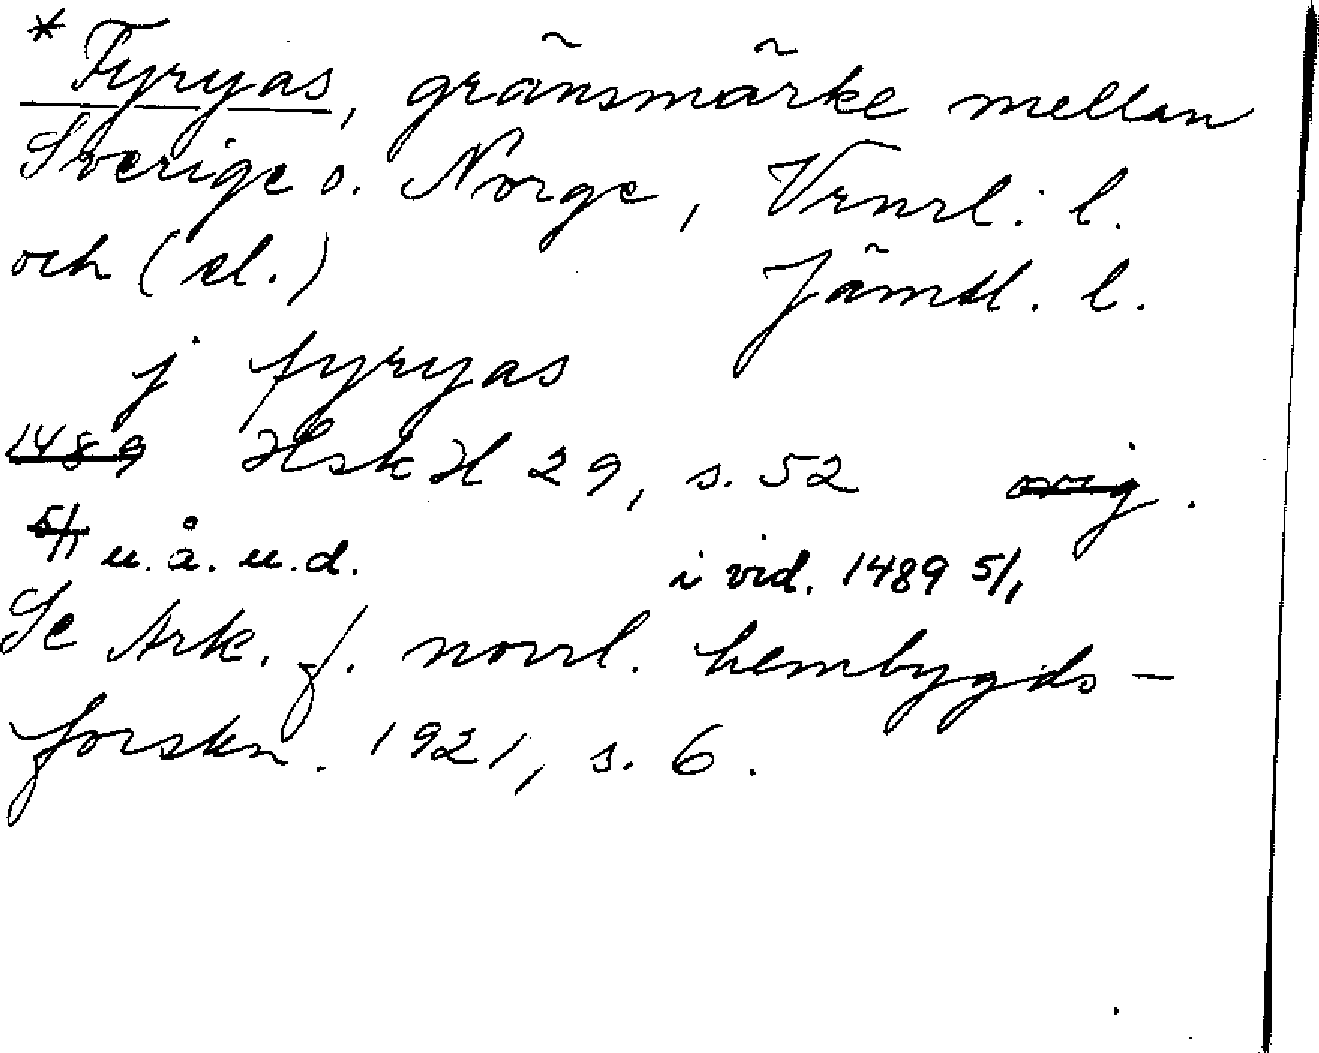 * Fyryas, gränsmärke mellan
Sverige o. Norge, Vrnrl. l.
och (el.) Jämtl. l.
j fyryas
1489 HskH 29, s. 52 orig.
5/1 u.å.u.d. i vid. 1489 5/1
Se Ark. f. norrl. hembygds-
forskn. 1921, s. 6.